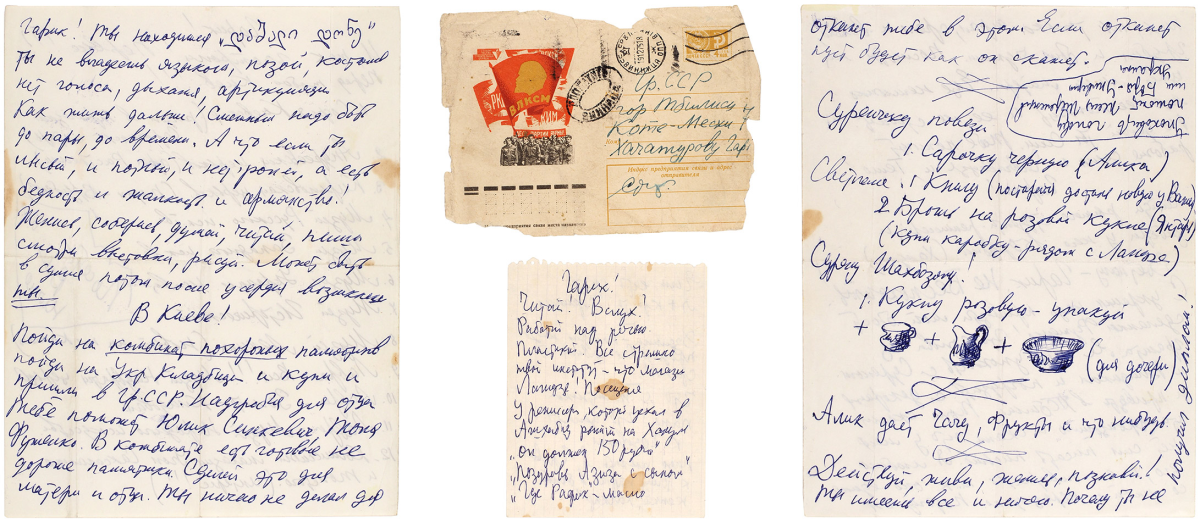 Гарик! Ты находишься „დაშალი დონე"
Ты не владеешь языком, позой, костюмом
нет голоса, дыхания, артикуляции
Как жить дальше! Смешным надо быть
до поры, до времени. А что если ты
иной, и, и не, а есть
бедность и и армянство!
Женись, соберись, думай, читай, пиши
смотри выставки, рисуй. Может быть
в сумме потом после усердия возникнешь
ты.
В Киеве!
Пойди на комбинат похоронных памятников
пойди на Укр Кладбища и купи и
пришли в Гр.ССР. Надгробия для отца
Тебе поможет Юлик Синкевич, Тоня
Фуженко. В комбинате есть готовые не
дорогие памятники. Сделай это для
матери и отца. Ты ничего не делал для
ВЛКСМ
РК
КИМ
Гр. ССР
гор Тбилиси
Коте-Месхи
Хачатурову Гари
Индекс предприятия связи и адрес
отправителя
Гарик!
Читай! Вслух!
Работай над речью.
Пластикой. Все страшно
твой институт – что магазин
Лагидзе! Посещение
У режиссера, который уехал в
Ашхабад работать на Ханум
„он должен 150 рублей
„Поздравь Азиза с сыном"
„Где Радик – масло
откажет тебе в этом. Если откажет
пусть будет как он скажет.
Суренчику повези
1. Сорочку черную (Алика)
Светлане. 1 Книгу (постарайся достань новую у Вани)
2 Брошь на розовой кукле (Янтарь)
(купи коробку – рядом с Лагидзе)
Сурену Шахбазяну!
1. Куклу розовую – упакуй
+ + + (для дочери)
Алик даёт Чачу, Фрукты и что нибудь
Действуй, живи, женись, познавай!
Ты имеешь все и ничего. Почему ты не
получил диплом!